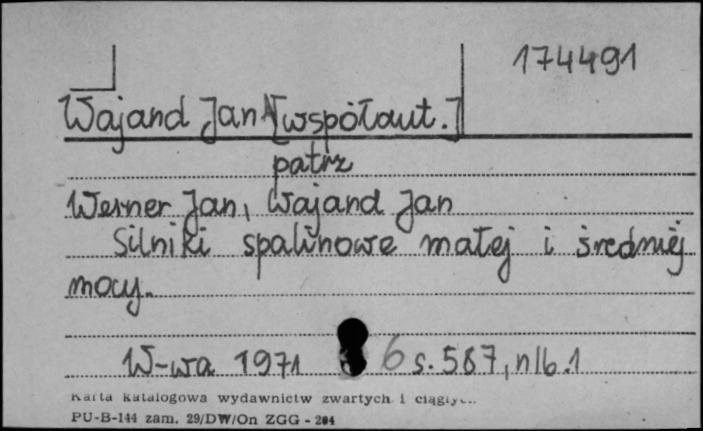 174491
Wajand Jan A [współaut.]
patrz
Werner Jan, Wajand Jan
Silniki spalinowe małej i średniej
mocy.
W-wa 1971 6 s. 587, nlb. 1
Karta katalogowa wydawnictw zwartych i
PU-B-144 zam. 29/DW/On ZGG - 204